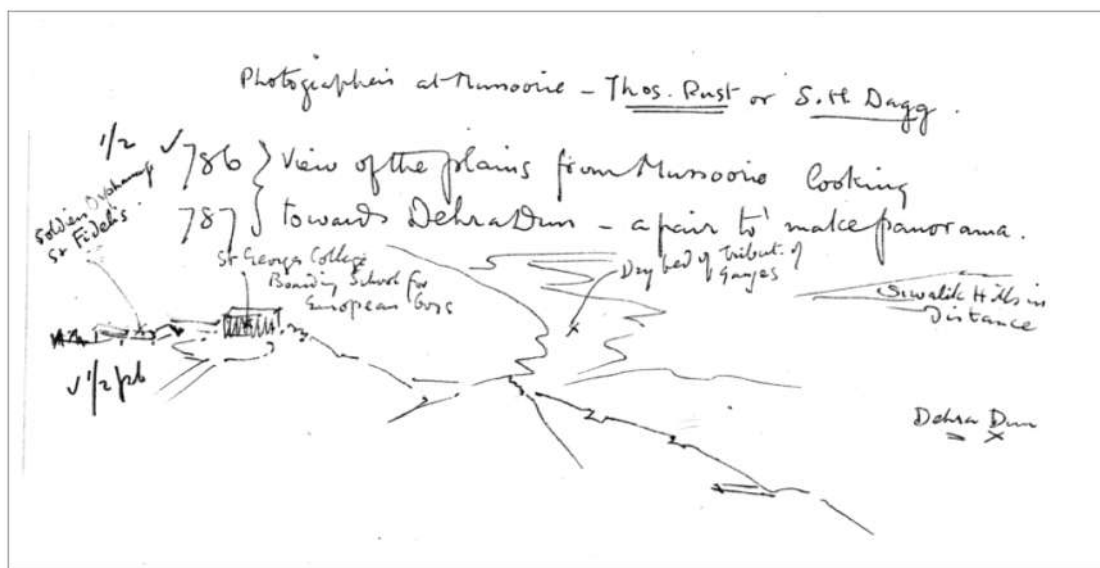 Photographers at Mussoorie - Thos. Rust or S.H. Dagg.
1/2 ✓ 786 } View of the plains from Mussoorie looking
787 } towards Dehra Dun - a pair to make panorama.
Soldiers Orphanage
St Fidelis
St Georges College
Boarding School for
European Boys
Dry bed of Tribut. of
Ganges
Siwalik Hills in
Distance
✓ 1/2 pb
Dehra Dun